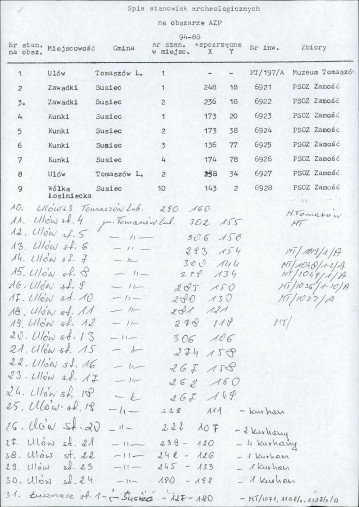 Spis stanowisk archeologicznych
na obszarze AZP
94-88
Nr stan. na obsz. Miejscowość Gmina Nr stan. w miejsc. współrzędne X Y Nr inw. Zbiory
1 Ulów Tomaszów L. 1 - - MT/197/A Muzeum Tomaszów
2 Zawadki Susiec 1 248 18 6921 PSOZ Zamość
3. Zawadki Susiec 2 236 18 6922 PSOZ Zamość
4 Kunki Susiec 1 173 20 6923 PSOZ Zamość
5 Kunki Susiec 2 173 38 6924 PSOZ Zamość
6 Kunki Susiec 3 136 77 6925 PSOZ Zamość
7 Kunki Susiec 4 174 78 6926 PSOZ Zamość
8 Ulów Tomaszów L. 2 258 34 6927 PSOZ Zamość
9 Wólka Łosiniecka Susiec 10 143 2 6928 PSOZ Zamość
10. Ulów st. 3 Tomaszów Lub. 290 160 M. Tomaszów
11. Ulów st. 4 Tomaszów Lub. 302 155 MT
12. Ulów st. 5 -"- 306 156
13. Ulów st. 6 -"- 293 154
14. Ulów st. 7 -"- 300 144
15. Ulów st. 8 -"- 134
16. Ulów st. 9 -"- 285 150
17. Ulów st. 10 -"- 280 130 MT/1027/A
18. Ulów st. 11 -"- 281 121
19. Ulów st. 12 -"- 278 MT/
20. Ulów st. 13 -"- 306 106
21. Ulów st. 15 -"- 274 158
22. Ulów st. 16 -"- 267 158
23. Ulów st. 17 -"- 262 160
24. Ulów st. 18 -"- 267 149
25. Ulów st. 19 -"- 228 111 - kurhan
26. Ulów st. 20 -"- 222 107 - 2 kurhany
27. Ulów st. 21 -"- 239 - 120 - 4 kurhany
28. Ulów st. 22 -"- 242 - 126 - 1 kurhan
29. Ulów st. 23 -"- 245 - 133 - 1 kurhan
30. Ulów st. 24 -"- 180 - 192 - 1 kurhan
31. st. 1 - Susiec - 127 - 180